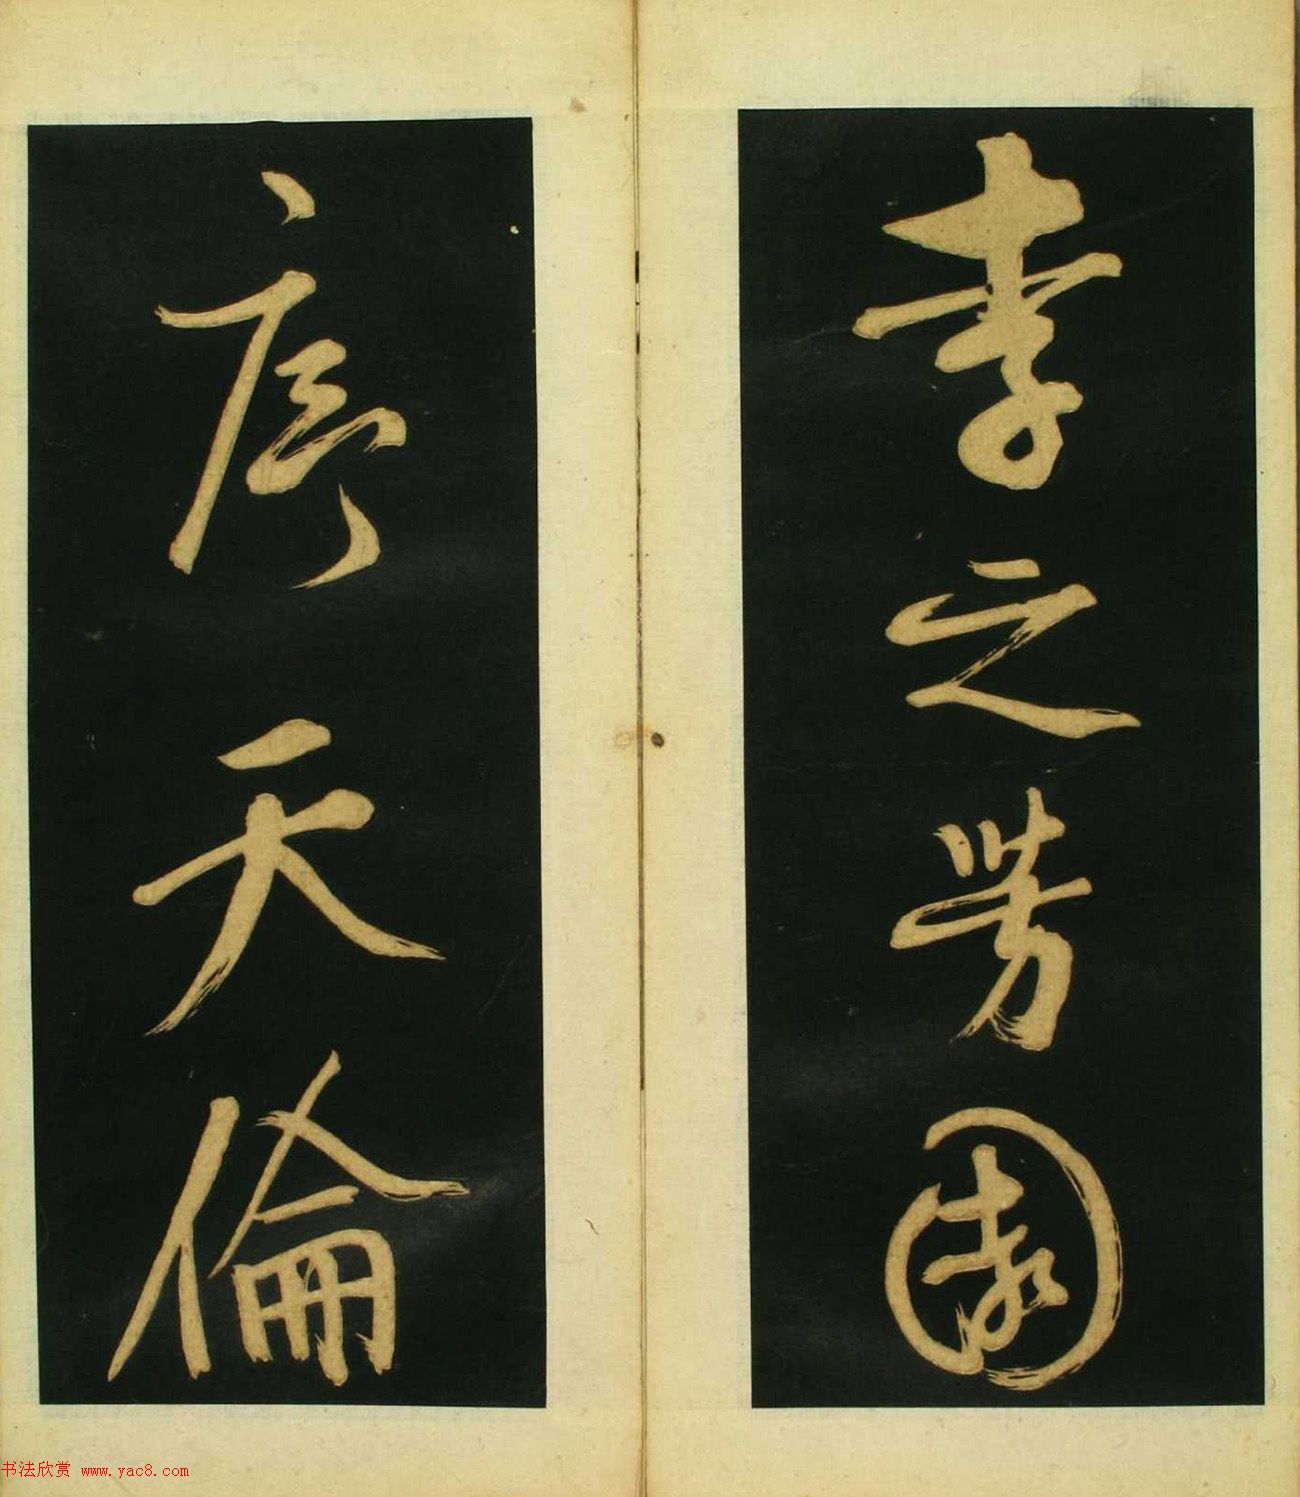 李之芳園
序天倫
书法欣赏 www.yac8.com